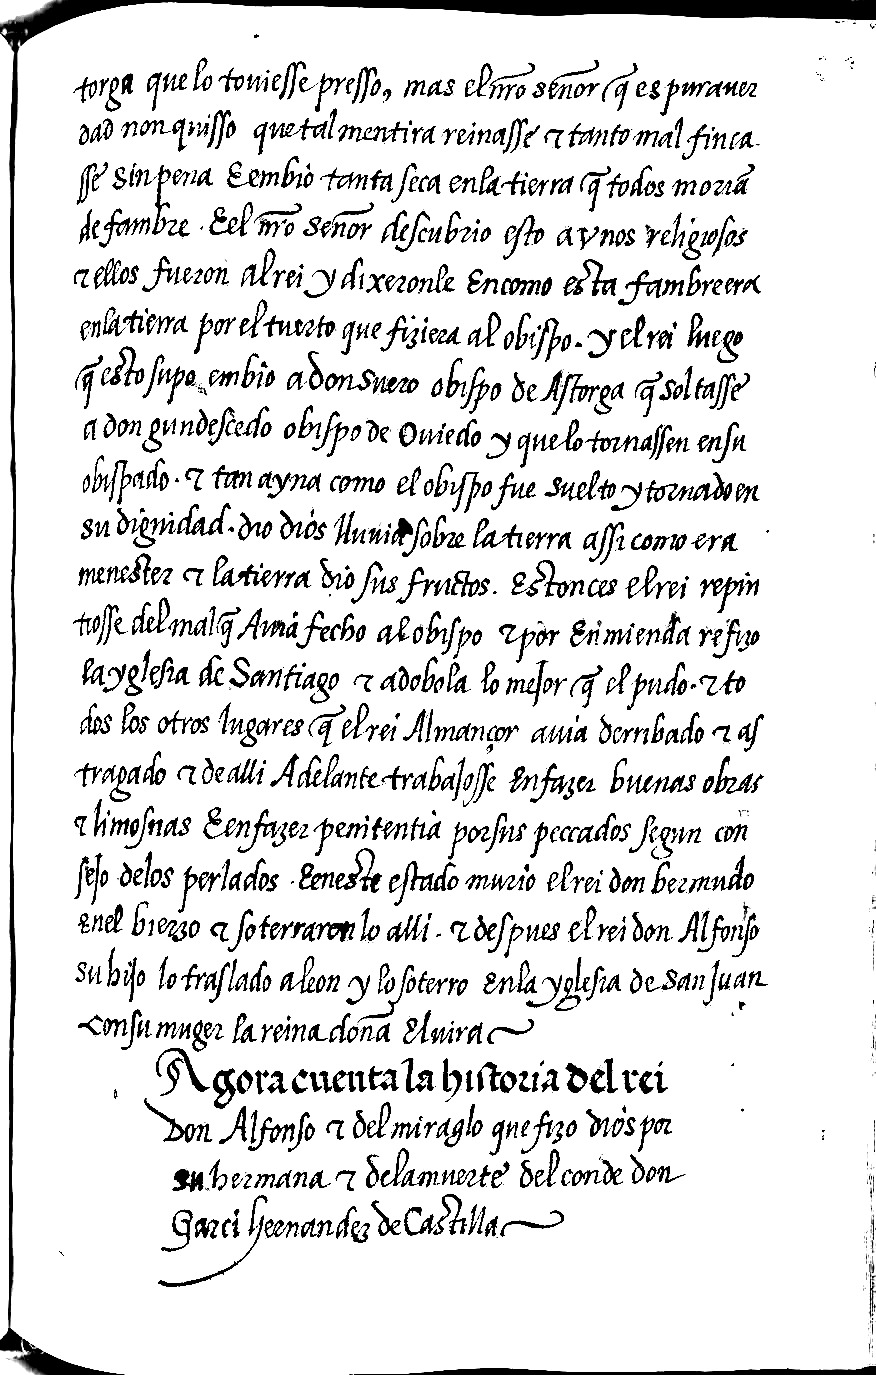 torga que lo touiesse presso, mas el nr̃o señor q̃ es pura uer
dad non quisso que tal mentira reinasse ⁊ tanto mal finca
sse sin pena E embio tanta seca en la tierra q̃ todos moriã
de fambre. E el nr̃o señor descubrio esto a vnos religiosos
⁊ ellos fueron al rei y dixeronle En como esta fambre era
en la tierra por el tuerto que fiziera al obispo. y el rei luego
q̃ esto supo embio a don suero obispo de Astorga q̃ soltasse
a don gundescedo obispo de Ouiedo y que lo tornassen en su
obispado. ⁊ tan ayna como el obispo fue suelto y tornado en
su dignidad. dio dios lluuia sobre la tierra assi como era
menester ⁊ la tierra dio sus fructos. Estonces el rei repin
tiosse del mal q̃ Auia fecho al obispo ⁊ por Enmienda refizo
la yglesia de Santiago ⁊ adobola lo mejor q̃ el pudo. ⁊ to
dos los otros lugares q̃ el rei Almançor auia derribado ⁊ as
tragado ⁊ de alli Adelante trabajosse En fazer buenas obras
⁊ limosnas E en fazer penitentia por sus peccados segun con
sejo de los perlados. E en este estado murio el rei don bermudo
En el bierzo ⁊ soterraron lo alli. ⁊ despues el rei don Alfonso
su hijo lo traslado a leon y lo soterro En la yglesia de san Juan
con su muger la reina doña Eluira
Agora cuenta la historia del rei
Don Alfonso ⁊ del miraglo que fizo dios por
su hermana ⁊ de la muerte del conde don
Garci hernandez de Castilla